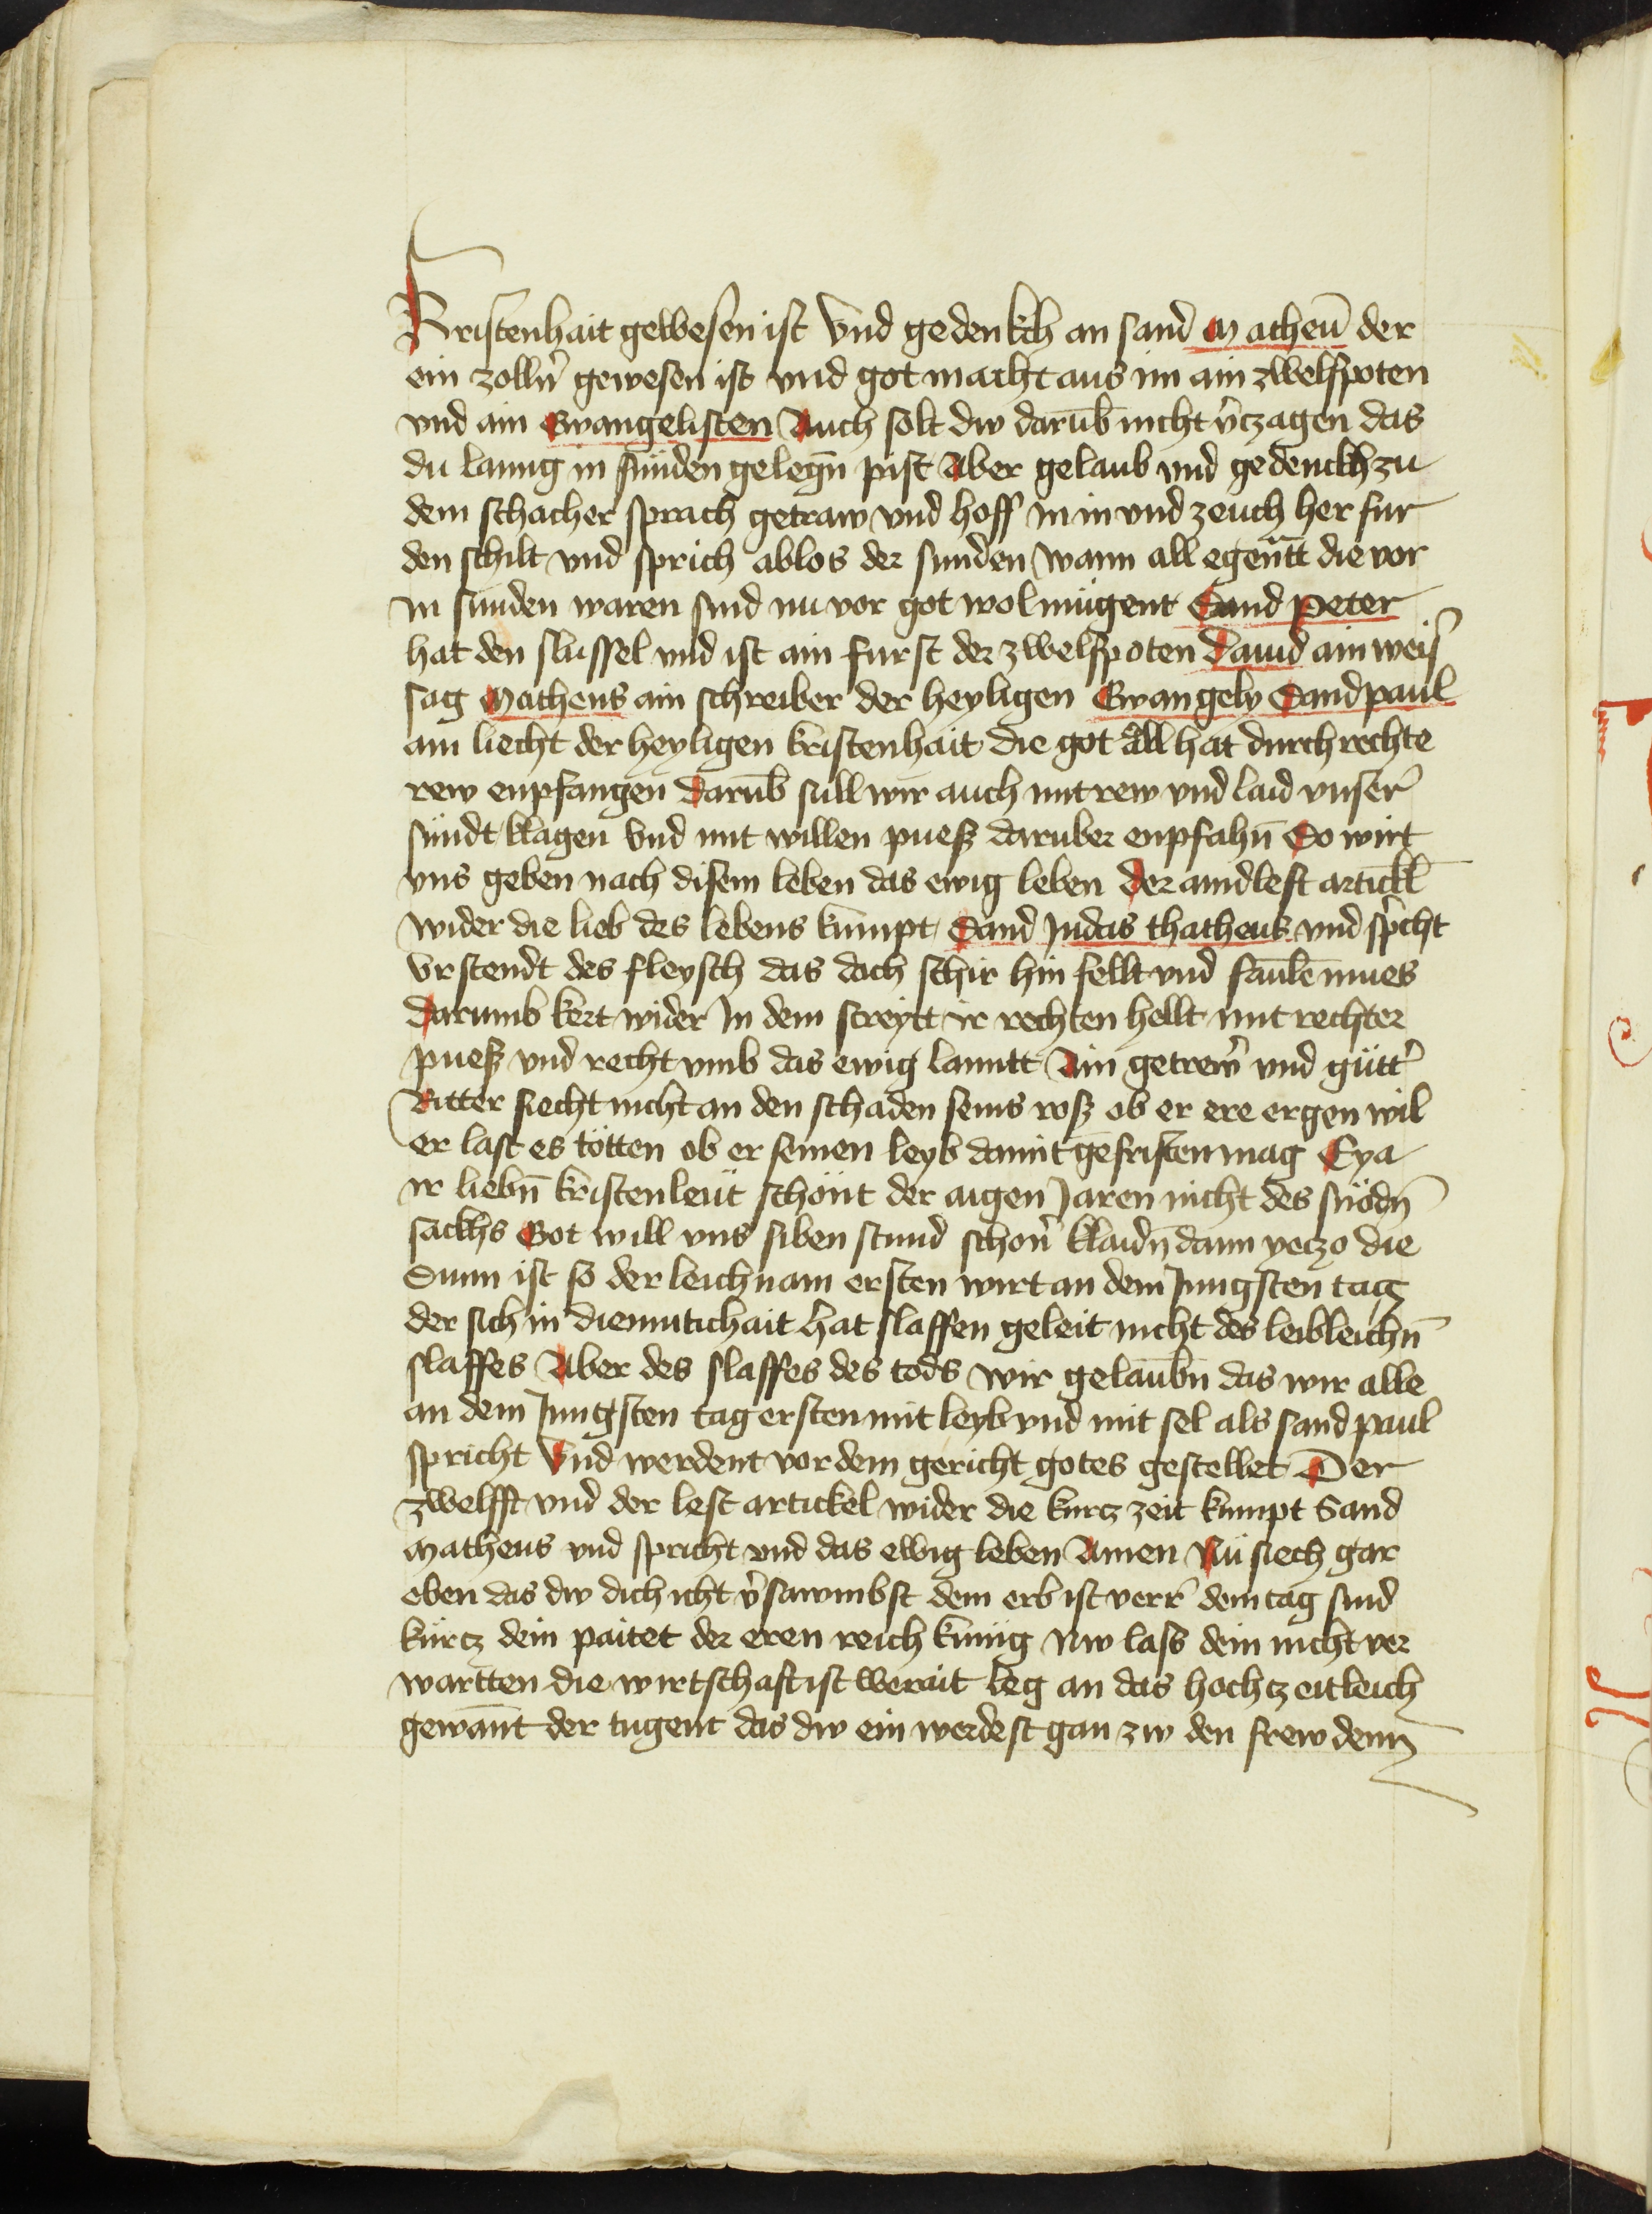 Kristenhait gewesen ist Vnd gedenkch an sand Matheu̅ der
ein zolln̓ gewesen ist vnd got macht aus im ain zwelfpoten
vnd ain Ewangelisten Auch solt dw daru̅b nicht v̓czagen das
du lanng in sünden geleg̅n pist Aber gelaub vnd gedenckh zu
dem schacher sprach getraw vnd hoff in in vnd zeuch her fur
den schilt vnd sprich ablos der sunden wann all egen̅tt die vor
in sunden waren sind nu vor got wol mügent Sand Peter
hat den slussel vnd ist ain furst der zwelfpoten Dauid ain weis
sag Matheus ain schreiber der heyligen Ewangely Sand paul
ain liecht der heyligen kristenhait die got all hat durch rechte
rew enpfangen Daru̅b sull wir auch mit rew vnd laid vnser̓
sündt klagen Vnd mit willen puess daruber enpfahn̅ So wirt
vns geben nach disem leben das ewig leben Der aindlest artickl̅
wider die lieb des lebens kumpt Sand Judas thatheus vnd sp̓cht
Vrstendt des fleysch das doch schir hin fellt vnd faule̅ mues
Darumb kert wider In dem streytt ir rechten hellt mit rechter
puess vnd recht vmb das ewig lanntt Ain getrew̓ vnd gütt̓
Ritter siecht nicht an den schaden seins ross ob er ere ergen wil
er last es tötten ob er seinen leyb damit gefristen mag Eya
ir liebn̅ kristenleut schönt der aigen Jaren nicht des snödn̅
sackhs Got will vns siben stund schon̓ klaidn̅ dann yeczo die
Sunn ist so der leichnam ersten wirt an dem Jungsten tag
der sich in diemutichait hat slaffen geleit nicht des leibleichn̅
slaffes Aber des slaffes des tods wir gelaubn̅ das wir alle
an dem Jungsten tag ersten mit leyb vnd mit sel als sand paul
spricht Vnd werdent vor dem gericht gotes gestellet Der
zwelfft vnd der lest artickel wider die kurcz zeit kumpt Sand
Matheus vnd spricht vnd das ewig leben Amen Nü siech gar
eben das dw dich icht v̓sawmbst dein erb ist verr̓ dein tag sind
kürcz dein paitet der eren reich künig Nw lass dein nicht ver
wartten die wirtschaft ist werait leg an das hochczeitleich
gewant der tugent das dw ein werdest gan zw den frewdenn